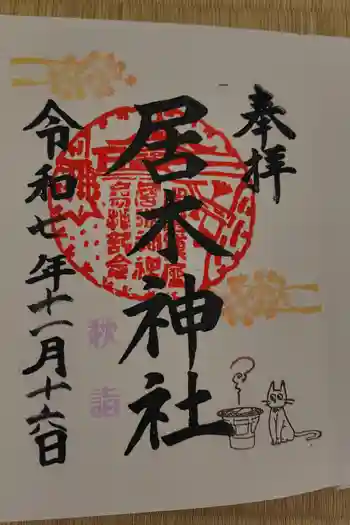 奉拝
居木神社
令和七年十一月十六日
秋詣